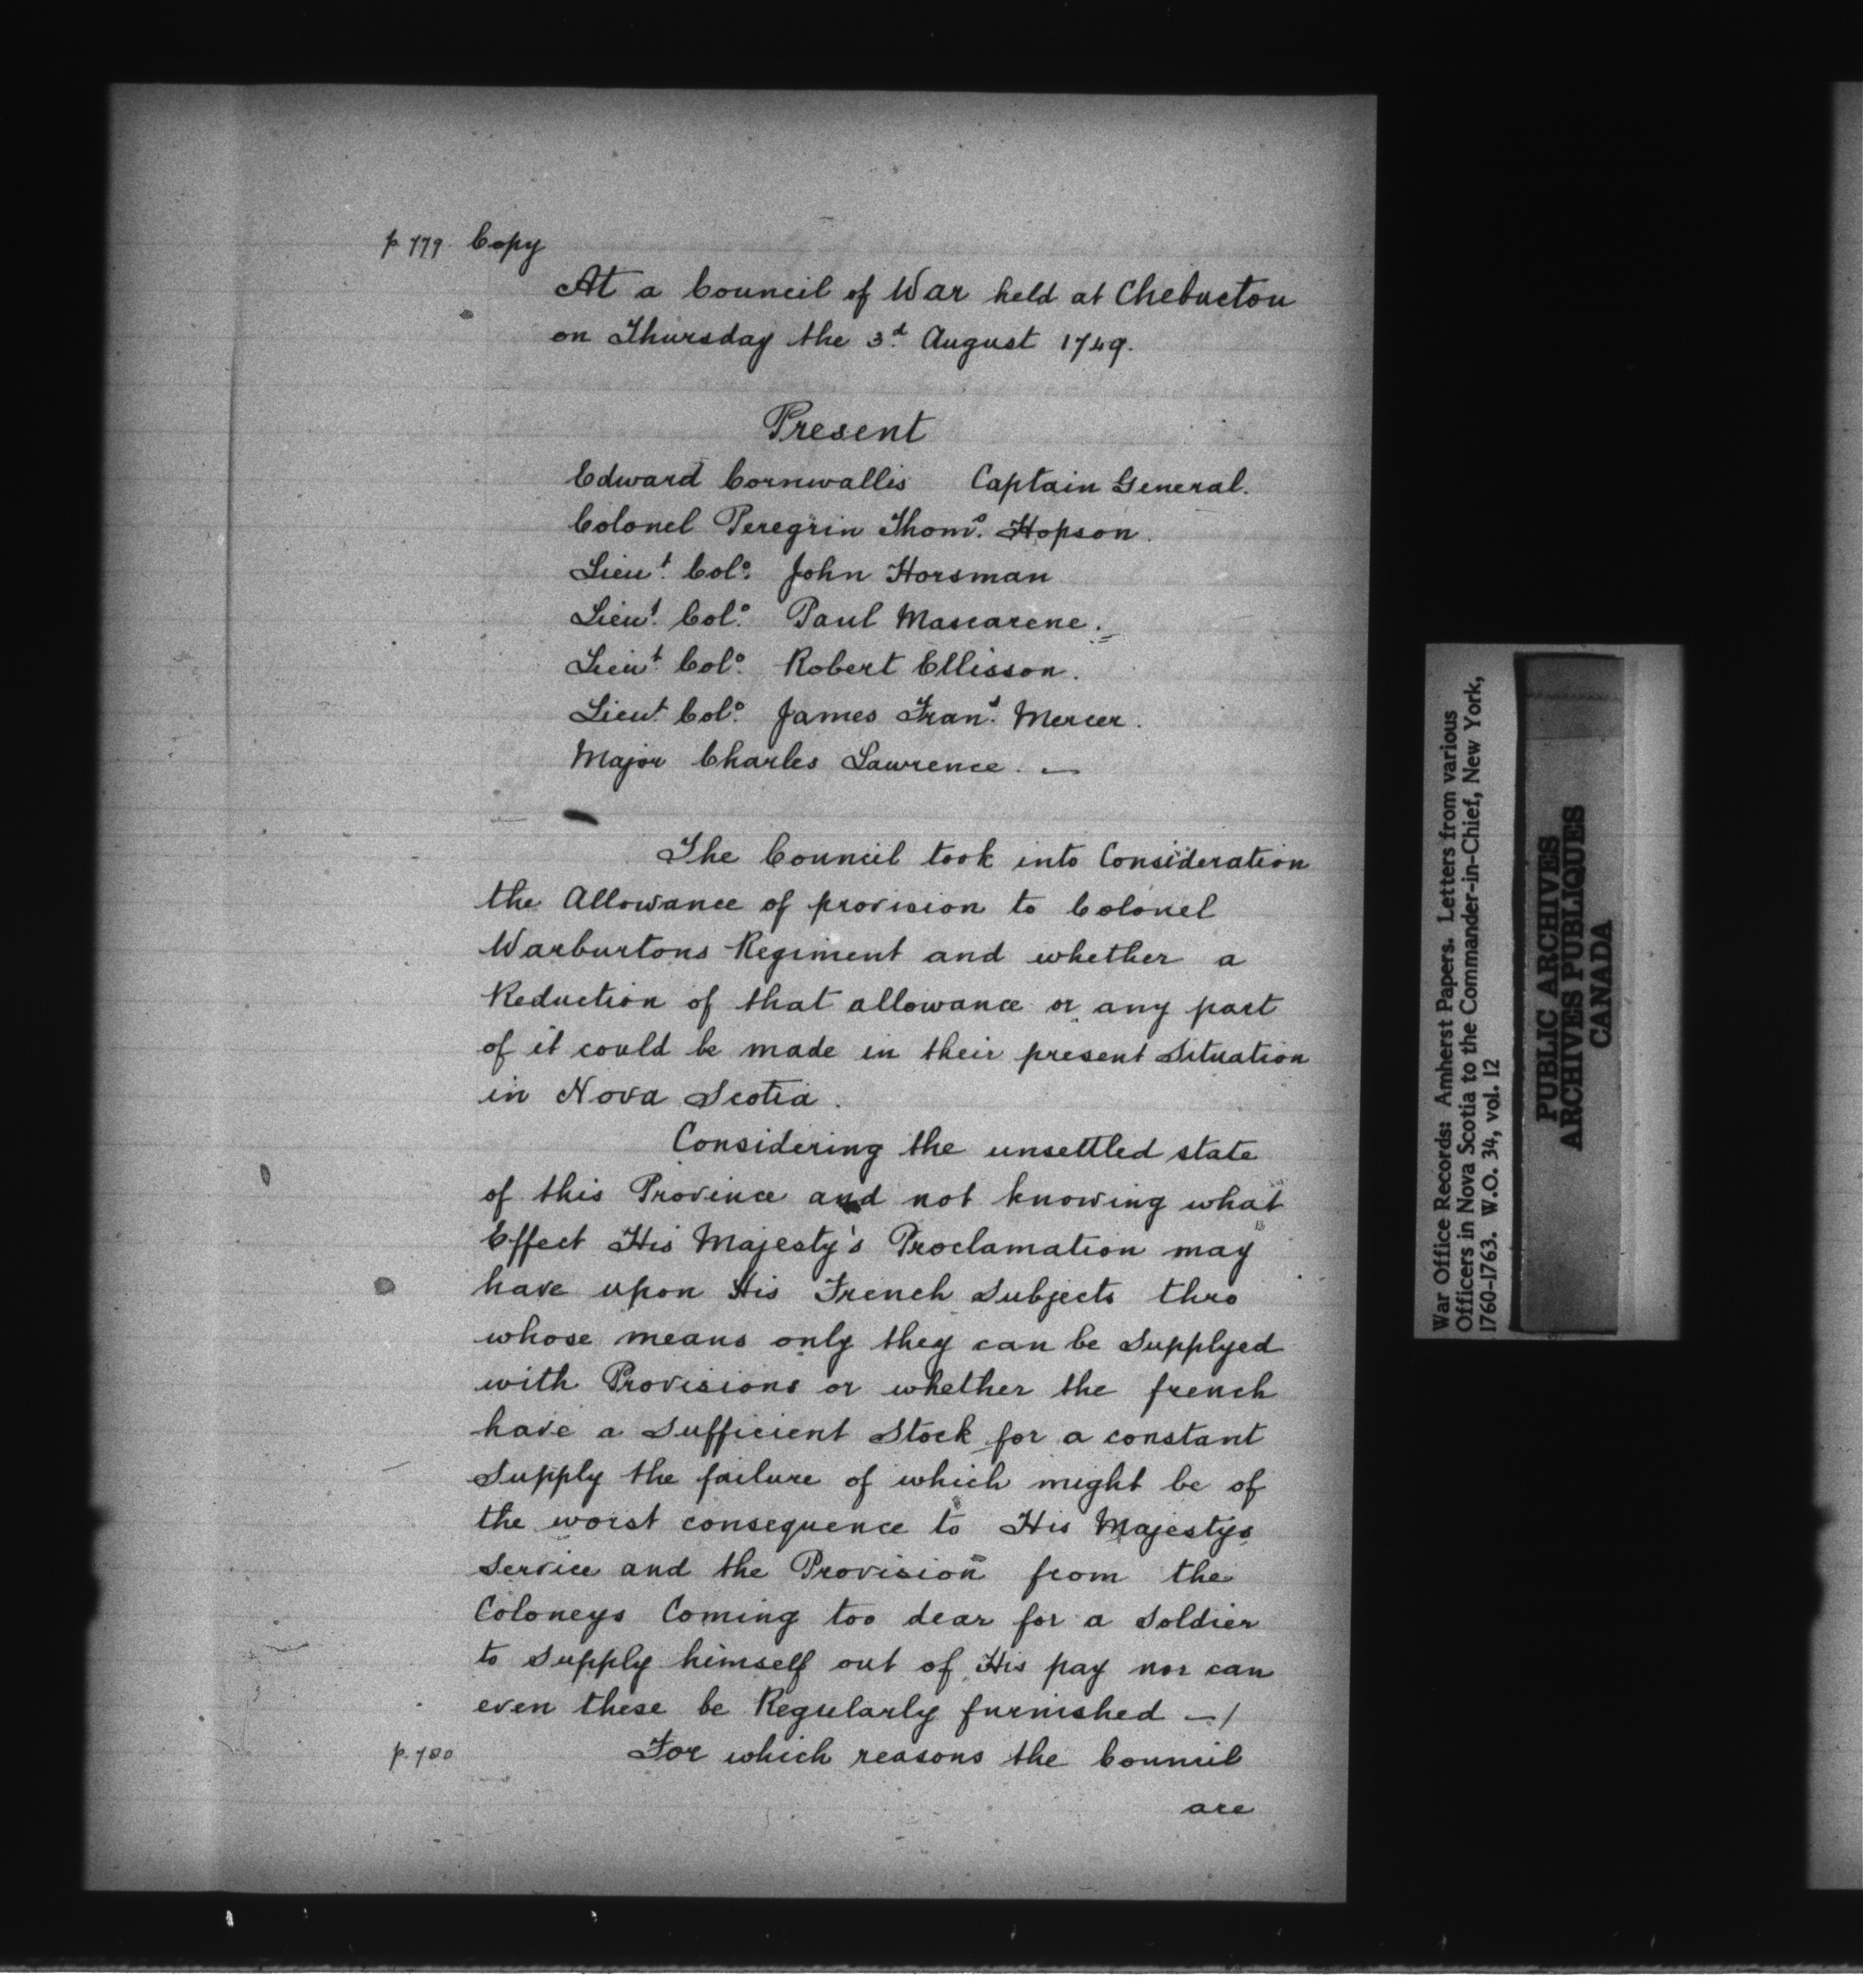 p. 779. Copy
At a Council of War held at Chebuctou
on Thursday the 3d. August 1749.
Present
Edward Cornwallis Captain General.
Colonel Peregrin Thoms. Hopson.
Lieut. Colo. John Horsman
Lieut. Colo. Paul Mascarene.
Lieut. Colo. Robert Ellisson.
Lieut Colo. James Frans. Mercer.
Major Charles Lawrence. —
The Council took into Consideration
the Allowance of provision to Colonel
Warburtons Regiment and whether a
Reduction of that allowance or any part
of it could be made in their present Situation
in Nova Scotia.
Considering the unsettled state
of this Province and not knowing what
Effect His Majesty's Proclamation may
have upon His French Subjects thro
whose means only they can be Supplyed
with Provisions or whether the french
have a Sufficient Stock for a constant
Supply the failure of which might be of
the worst consequence to His Majestys
Service and the Provision from the
Coloneys Coming too dear for a Soldier
to Supply himself out of His pay nor can
even these be Regularly furnished —/
p. 780 For which reasons the Council
are
War Office Records: Amherst Papers. Letters from various
Officers in Nova Scotia to the Commander-in-Chief, New York,
1760-1763. W.O. 34, vol. 12
PUBLIC ARCHIVES
ARCHIVES PUBLIQUES
CANADA